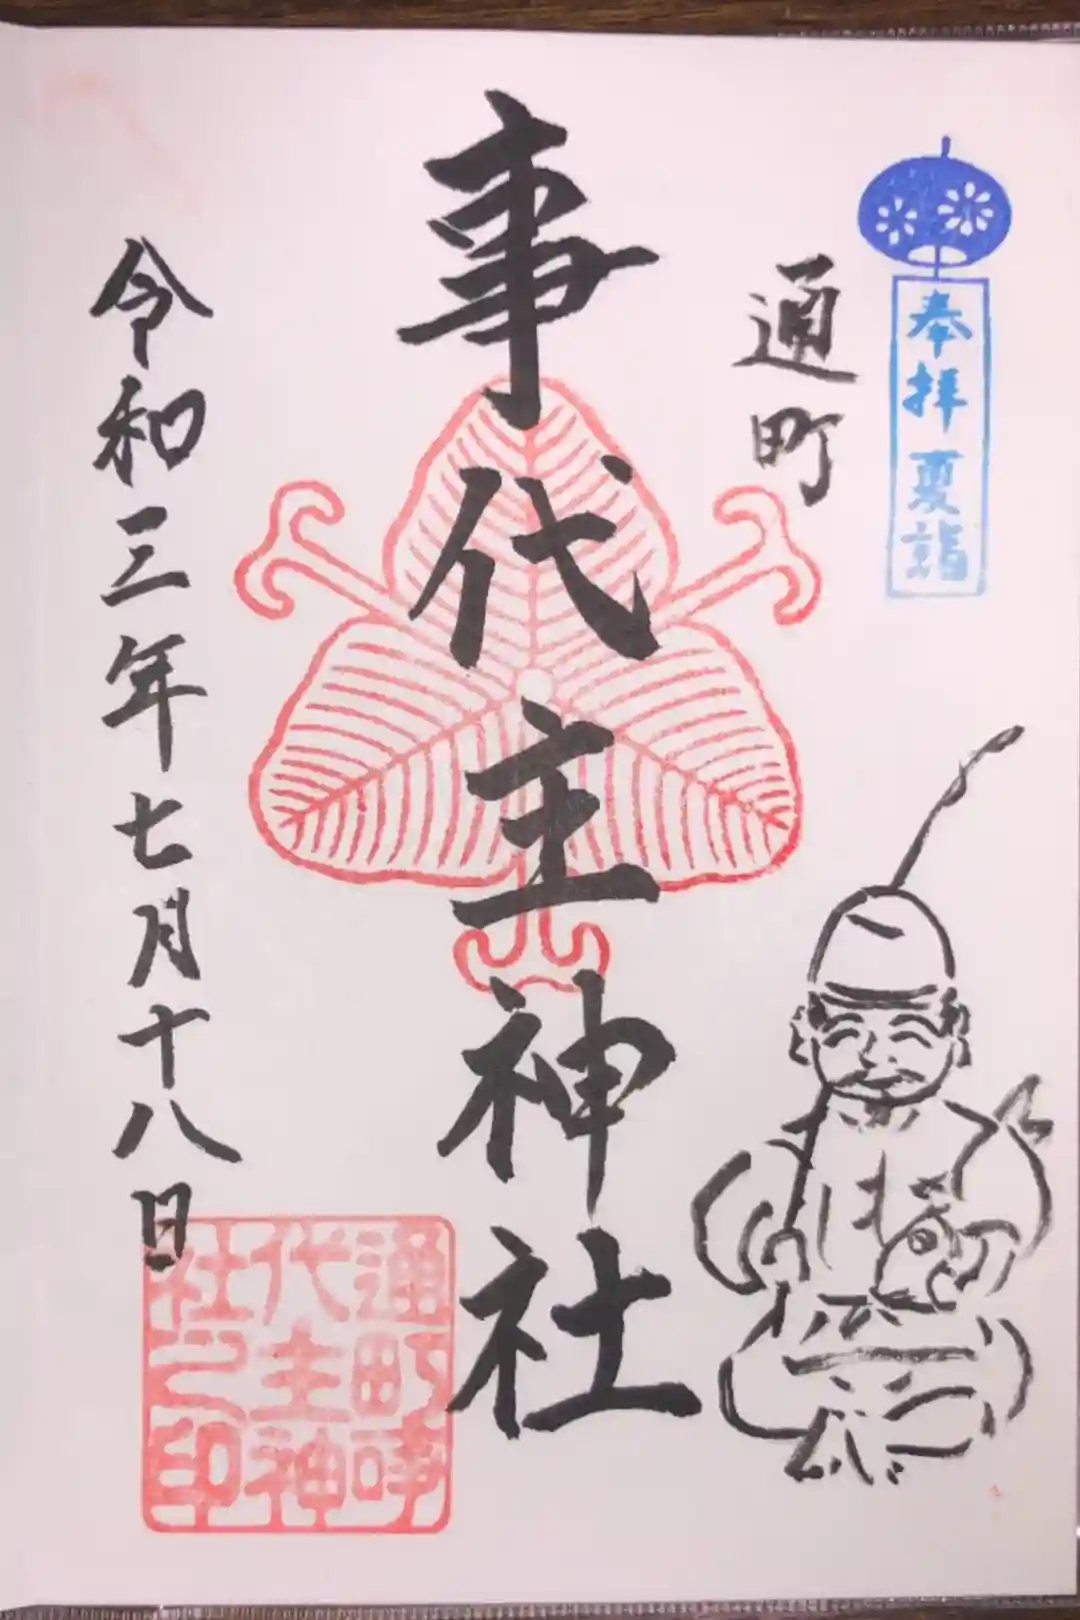 奉拝夏詣
通町
事代主神社
令和三年七月十八日
通町事
代主神
社之印